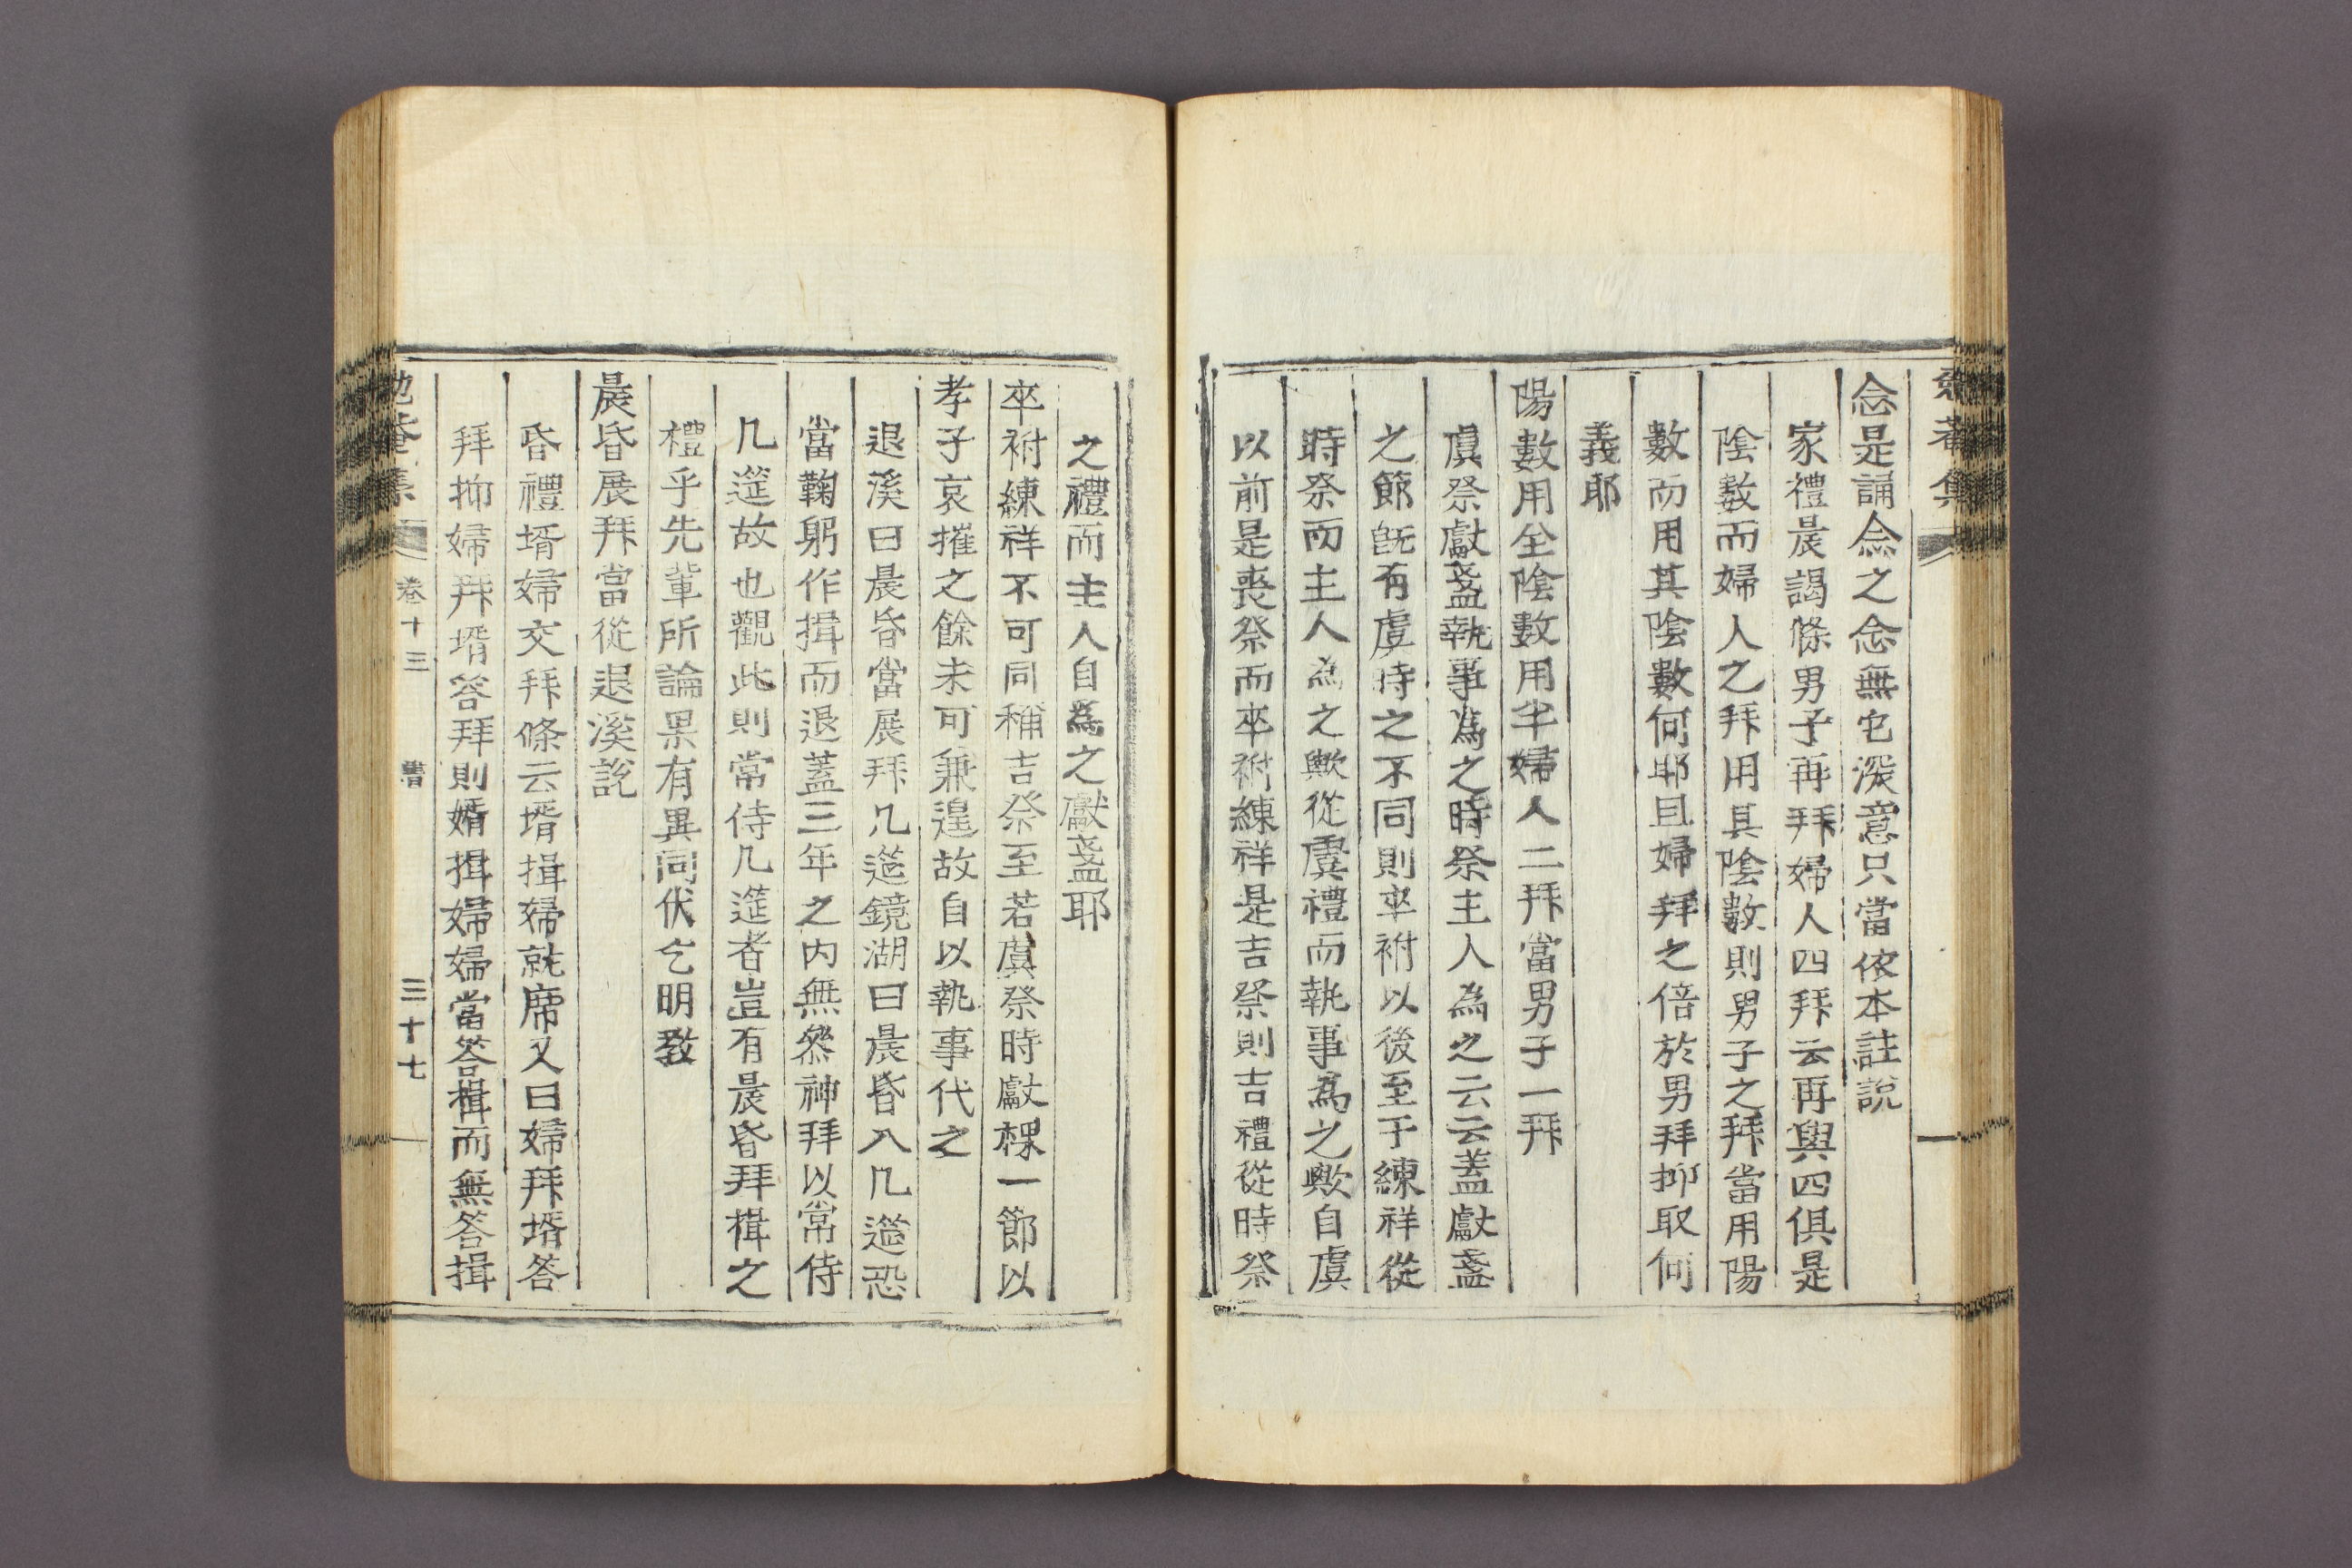 念是誦念之念無它深意只當依本註說
家禮晨謁條男子再拜婦人四拜云再與四俱是
陰數而婦人之拜用其陰數則男子之拜當用陽
數而用其陰數何耶且婦拜之倍於男拜抑取何
義耶
陽數用全陰數用半婦人二拜當男子一拜
虞祭獻盞執事爲之時祭主人爲之云云蓋獻盞
之節旣有虞時之不同則卒祔以後至于練祥從
時祭而主人爲之歟從虞禮而執事爲之歟自虞
以前是喪祭而卒祔練祥是吉祭則吉禮從時祭
之禮而主人自爲之獻盞耶
卒祔練祥不可同稱吉祭至若虞祭時獻盞一節以
孝子哀摧之餘未可兼遑故自以執事代之
退溪曰晨昏當展拜几筵鏡湖曰晨昏入几筵恐
當鞠躬作揖而退蓋三年之內無祭神拜以常侍
几筵故也觀此則常侍几筵者豈有晨昏拜揖之
禮乎先輩所論果有異同伏乞明敎
晨昏展拜當從退溪說
昏禮壻婦交拜條云壻揖婦就席又曰婦拜壻答
拜抑婦拜壻答拜則壻揖婦婦當答揖而無答揖
菴集 卷十三 書 三十七